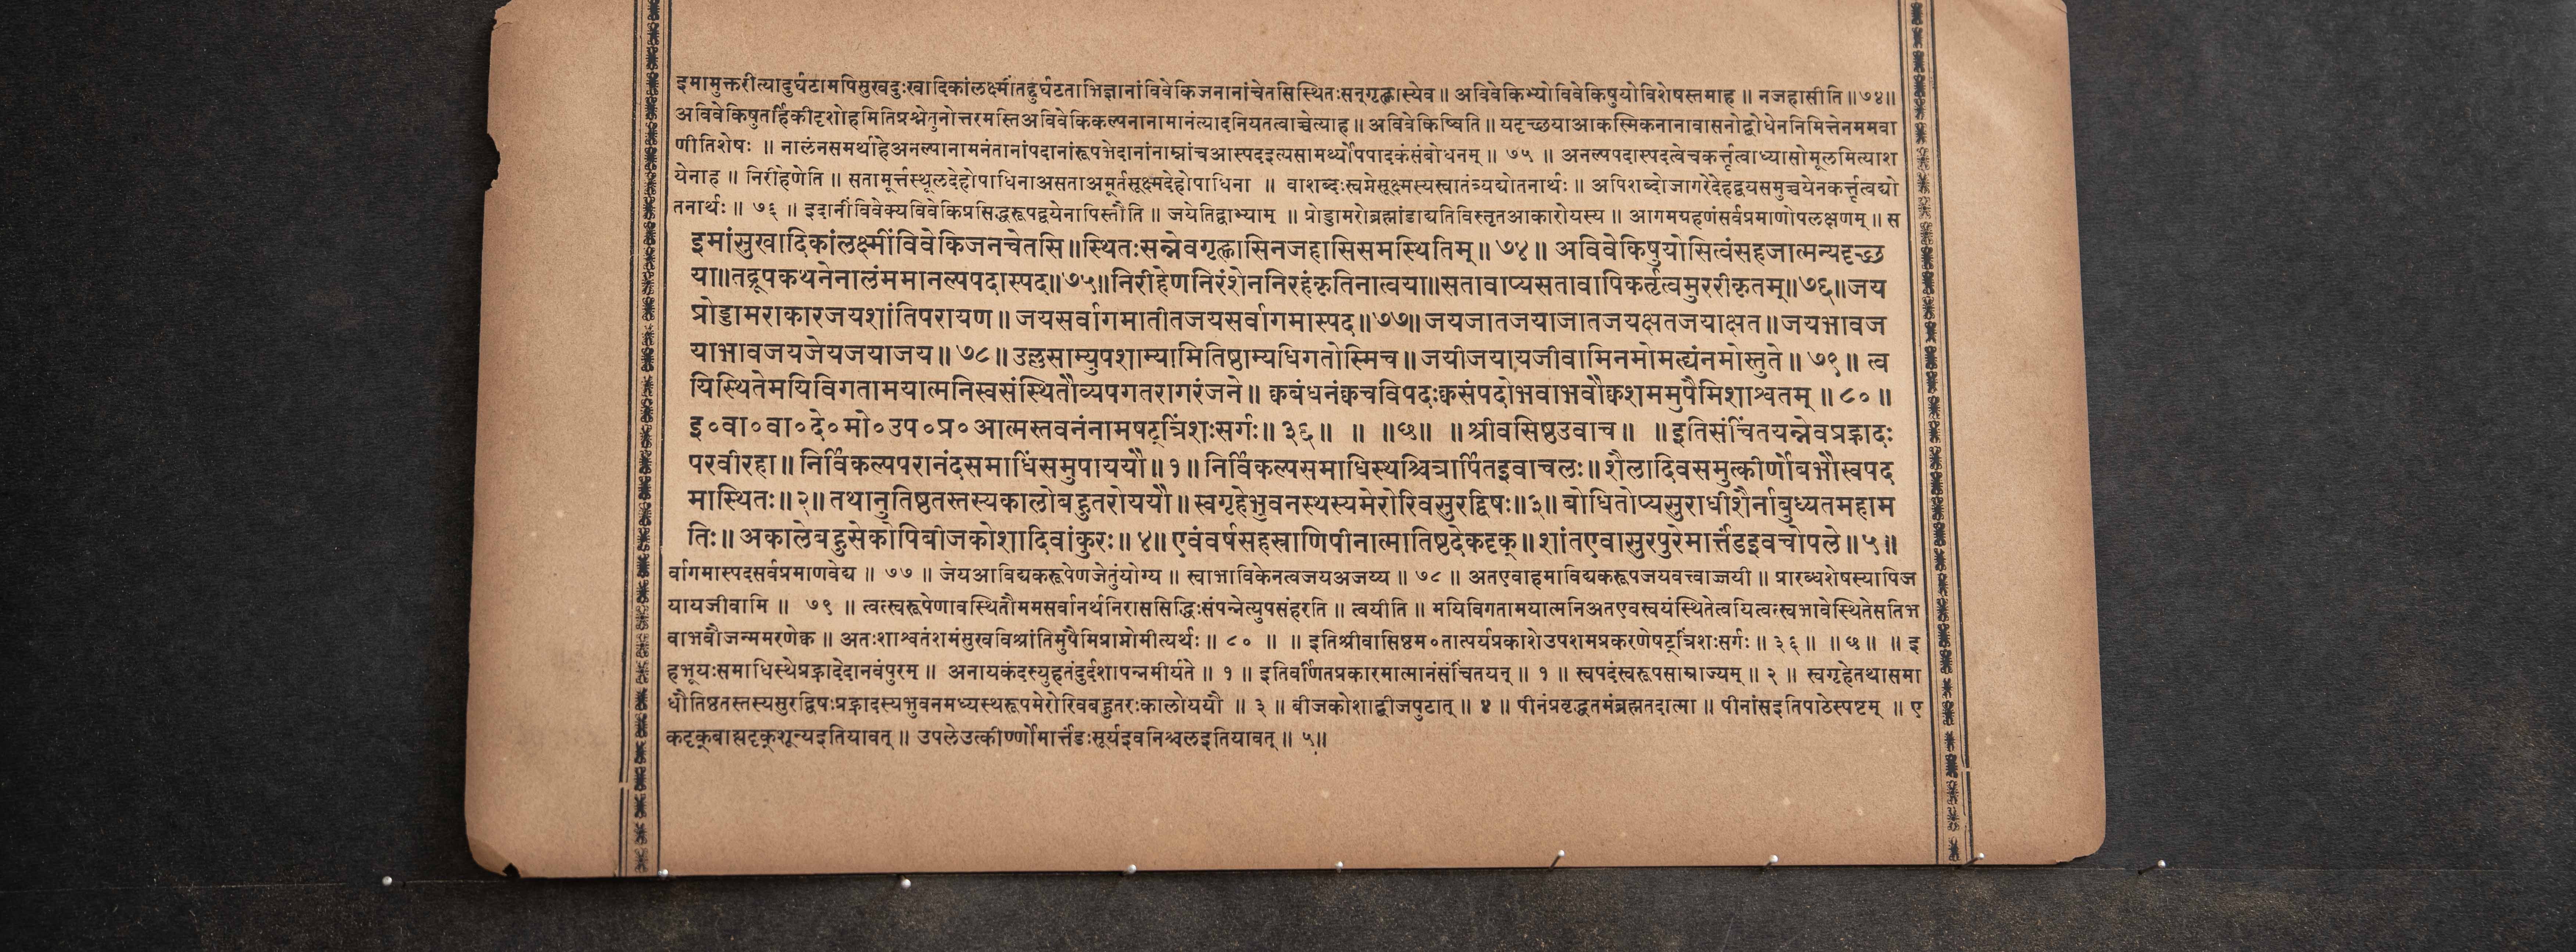 इमामुक्तरीत्यादुर्घटामपिसुखदुःखादिकांलक्ष्मींतद्दुर्घटताभिज्ञानांविवेकिजनानांचेतसिस्थितःसन्गृह्णास्येव॥ अविवेकिभ्योविवेकिषुयोविशेषस्तमाह॥ नजहासीति॥७४॥
अविवेकिषुतर्हिकीदृशोहमितिप्रश्नेतुनोत्तरमस्तिअविवेकिकल्पनानामानंत्यादनियतत्वाच्चेत्याह॥ अविवेकिष्विति॥ यदृच्छयाआकस्मिकनानावासनोद्बोधेननिमित्तेनममवा
णीतिशेषः ॥ नालंनसमर्थाहेअनल्पानामनंतानांपदानांरूपभेदानांनाम्नांचआस्पदइत्यसामर्थ्योपपादकंसंबोधनम्॥ ७५ ॥ अनल्पपदास्पदत्वेचकर्त्तृत्वाध्यासोमूलमित्याश
येनाह ॥ निरीहेणेति॥ सतामूर्त्तस्थूलदेहोपाधिनाअसताअमूर्तसूक्ष्मदेहोपाधिना ॥ वाशब्दःस्वप्नेसूक्ष्मस्यस्वातंत्र्यद्योतनार्थः॥ अपिशब्दोजागरेदेहद्वयसमुच्चयेनकर्त्तृत्वद्यो
तनार्थः॥ ७६ ॥ इदानींविवेक्यविवेकिप्रसिद्धरूपद्वयेनापिस्तौति॥ जयेतिद्वाभ्याम् ॥ प्रोड्डामरोब्रह्मांडाद्यतिविस्तृतआकारोयस्य॥ आगमग्रहणंसर्वप्रमाणोपलक्षणम्॥ स
इमांसुखादिकांलक्ष्मींविवेकिजनचेतसि॥स्थितःसन्नेवगृह्णासिनजहासिसमस्थितिम्॥७४॥ अविवेकिषुयोसित्वंसहजात्मन्यदृच्छ
या॥तद्रूपकथनेनालंममानल्पपदास्पद॥७५॥निरीहेणनिरंशेननिरहंकृतिनात्वया॥सतावाप्यसतावापिकर्तृत्वमुररीकृतम्॥७६॥जय
प्रोड्डामराकारजयशांतिपरायण॥ जयसर्वागमातीतजयसर्वागमास्पद॥७७॥जयजातजयाजातजयक्षतजयाक्षत॥जयभावज
याभावजयजेयजयाजय॥ ७८॥ उल्लसाम्युपशाम्यामितिष्ठाम्यधिगतोस्मिच॥ जयीजयायजीवामिनमोमह्यंनमोस्तुते॥ ७९॥ त्व
यिस्थितेमयिविगतामयात्मनिस्वसंस्थितौव्यपगतरागरंजने॥ क्वबंधनंक्वचविपदःक्वसंपदोभवाभवौक्वशममुपैमिशाश्वतम्॥८०॥
इ०वा०वा०दे०मो०उप०प्र०आत्मस्तवनंनामषट्त्रिंशःसर्गः॥ ३६॥ ॥ ॥७॥ ॥श्रीवसिष्ठउवाच॥ ॥इतिसंचिंतयन्नेवप्रह्लादः
परवीरहा॥ निर्विकल्पपरानंदसमाधिंसमुपाययौ॥१॥निर्विकल्पसमाधिस्थश्चित्रार्पितइवाचलः॥शैलादिवसमुत्कीर्णोबभौस्वपद
मास्थितः॥२॥तथानुतिष्ठतस्तस्यकालोबहुतरोययौ॥स्वगृहेभुवनस्थस्यमेरोरिवसुरद्विषः॥३॥ बोधितोप्यसुराधीशैर्नाबुध्यतमहाम
तिः॥ अकालेबहुसेकोपिबीजकोशादिवांकुरः॥ ४॥ एवंवर्षसहस्राणिपीनात्मातिष्ठदेकदृक्॥ शांतएवासुरपुरेमार्त्तंडइवचोपले॥५॥
र्वागमास्पदसर्वप्रमाणवेद्य ॥ ७७ ॥ जेयआविद्यकरूपेणजेतुंयोग्य ॥ स्वाभाविकेनत्वजयअजय्य ॥ ७८ ॥ अतएवाहमाविद्यकरूपजयवत्त्वाज्जयी॥ प्रारब्धशेषस्यापिज
यायजीवामि ॥ ७९ ॥ त्वत्स्वरूपेणावस्थितौममसर्वानर्थनिराससिद्धिःसंपन्नेत्युपसंहरति॥ त्वयीति॥ मयिविगतामयात्मनिअतएवस्वयंस्थितेत्वयित्वत्स्वभावेस्थितेसतिभ
वाभवौजन्ममरणेक्व॥ अतःशाश्वतंशमंसुखविश्रांतिमुपैमिप्राप्नोमीत्यर्थः॥ ८० ॥ ॥ इतिश्रीवासिष्ठम०तात्पर्यप्रकाशेउपशमप्रकरणेषट्त्रिंशःसर्गः॥ ३६॥ ॥७॥ ॥ इ
हभूयःसमाधिस्थेप्रह्लादेदानवंपुरम्॥ अनायकंदस्युहतंदुर्दशापन्नमीर्यते॥ १ ॥ इतिवर्णितप्रकारमात्मानंसंचिंतयन्॥ १ ॥ स्वपदंस्वरूपसाम्राज्यम्॥ २ ॥ स्वगृहेतथासमा
धौतिष्ठतस्तस्यसुरद्विषःप्रह्लादस्यभुवनमध्यस्थरूपमेरोरिवबहुतरःकालोययौ ॥ ३ ॥ बीजकोशाद्बीजपुटात्॥ ४ ॥ पीनंप्रवृद्धतमंब्रह्मतदात्मा॥ पीनांसइतिपाठेस्पष्टम् ॥ ए
कदृक्‌बाह्यदृक्‌शून्यइतियावत्॥ उपलेउत्कीर्ण्णोमार्त्तंडःसूर्यइवनिश्चलइतियावत्॥ ५॥